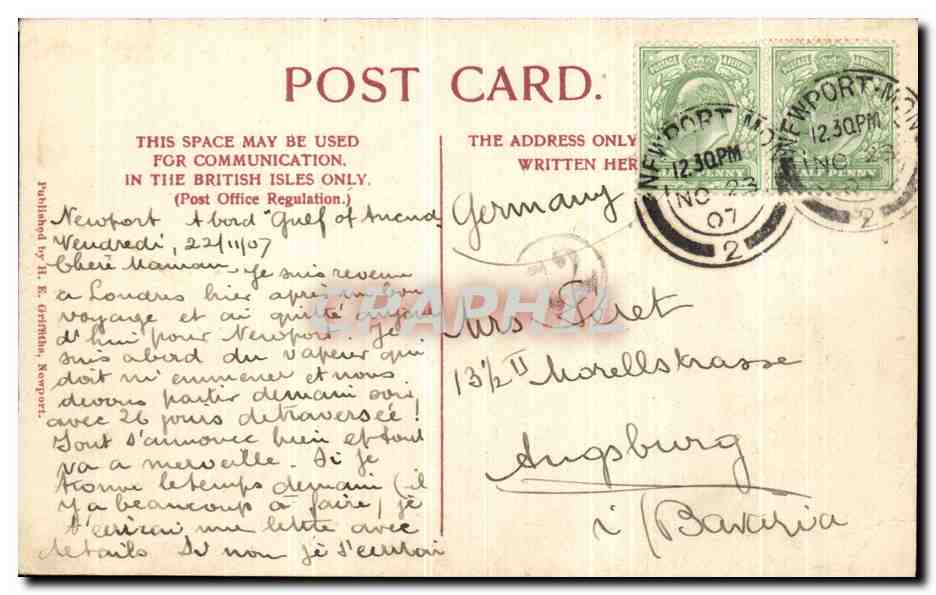 POST CARD.
THIS SPACE MAY BE USED
FOR COMMUNICATION.
IN THE BRITISH ISLES ONLY.
(Post Office Regulation.)
THE ADDRESS ONLY
WRITTEN HER
Published by H. E. Griffiths, Newport.
Newport Abord "Gulf of Ancud
Vendredi, 22/11/07
Chère Maman, Je suis revenu
a Londres hier après un bon
voyage et ai quitté aujour
d'hui pour Newport. Je
suis abord du vapeur qui
doit m'emmener et nous
devons partir demain soir
avec 26 jours de traversée!
Tout s'annonce bien et tout
va a merveille. Si je
trouve le temps demain (il
y a beaucoup à faire) je
t'écrirai une lettre avec
details Si non je t'écrirai
Germany
Mrs
13½ II Morellstrasse
Augsburg
i/Bavaria
NEWPORT·MON
12.30PM
NO 23
07
2
NEWPORT·MON
12.30PM
NO 23
2
HALF PENNY
CARAPHIL